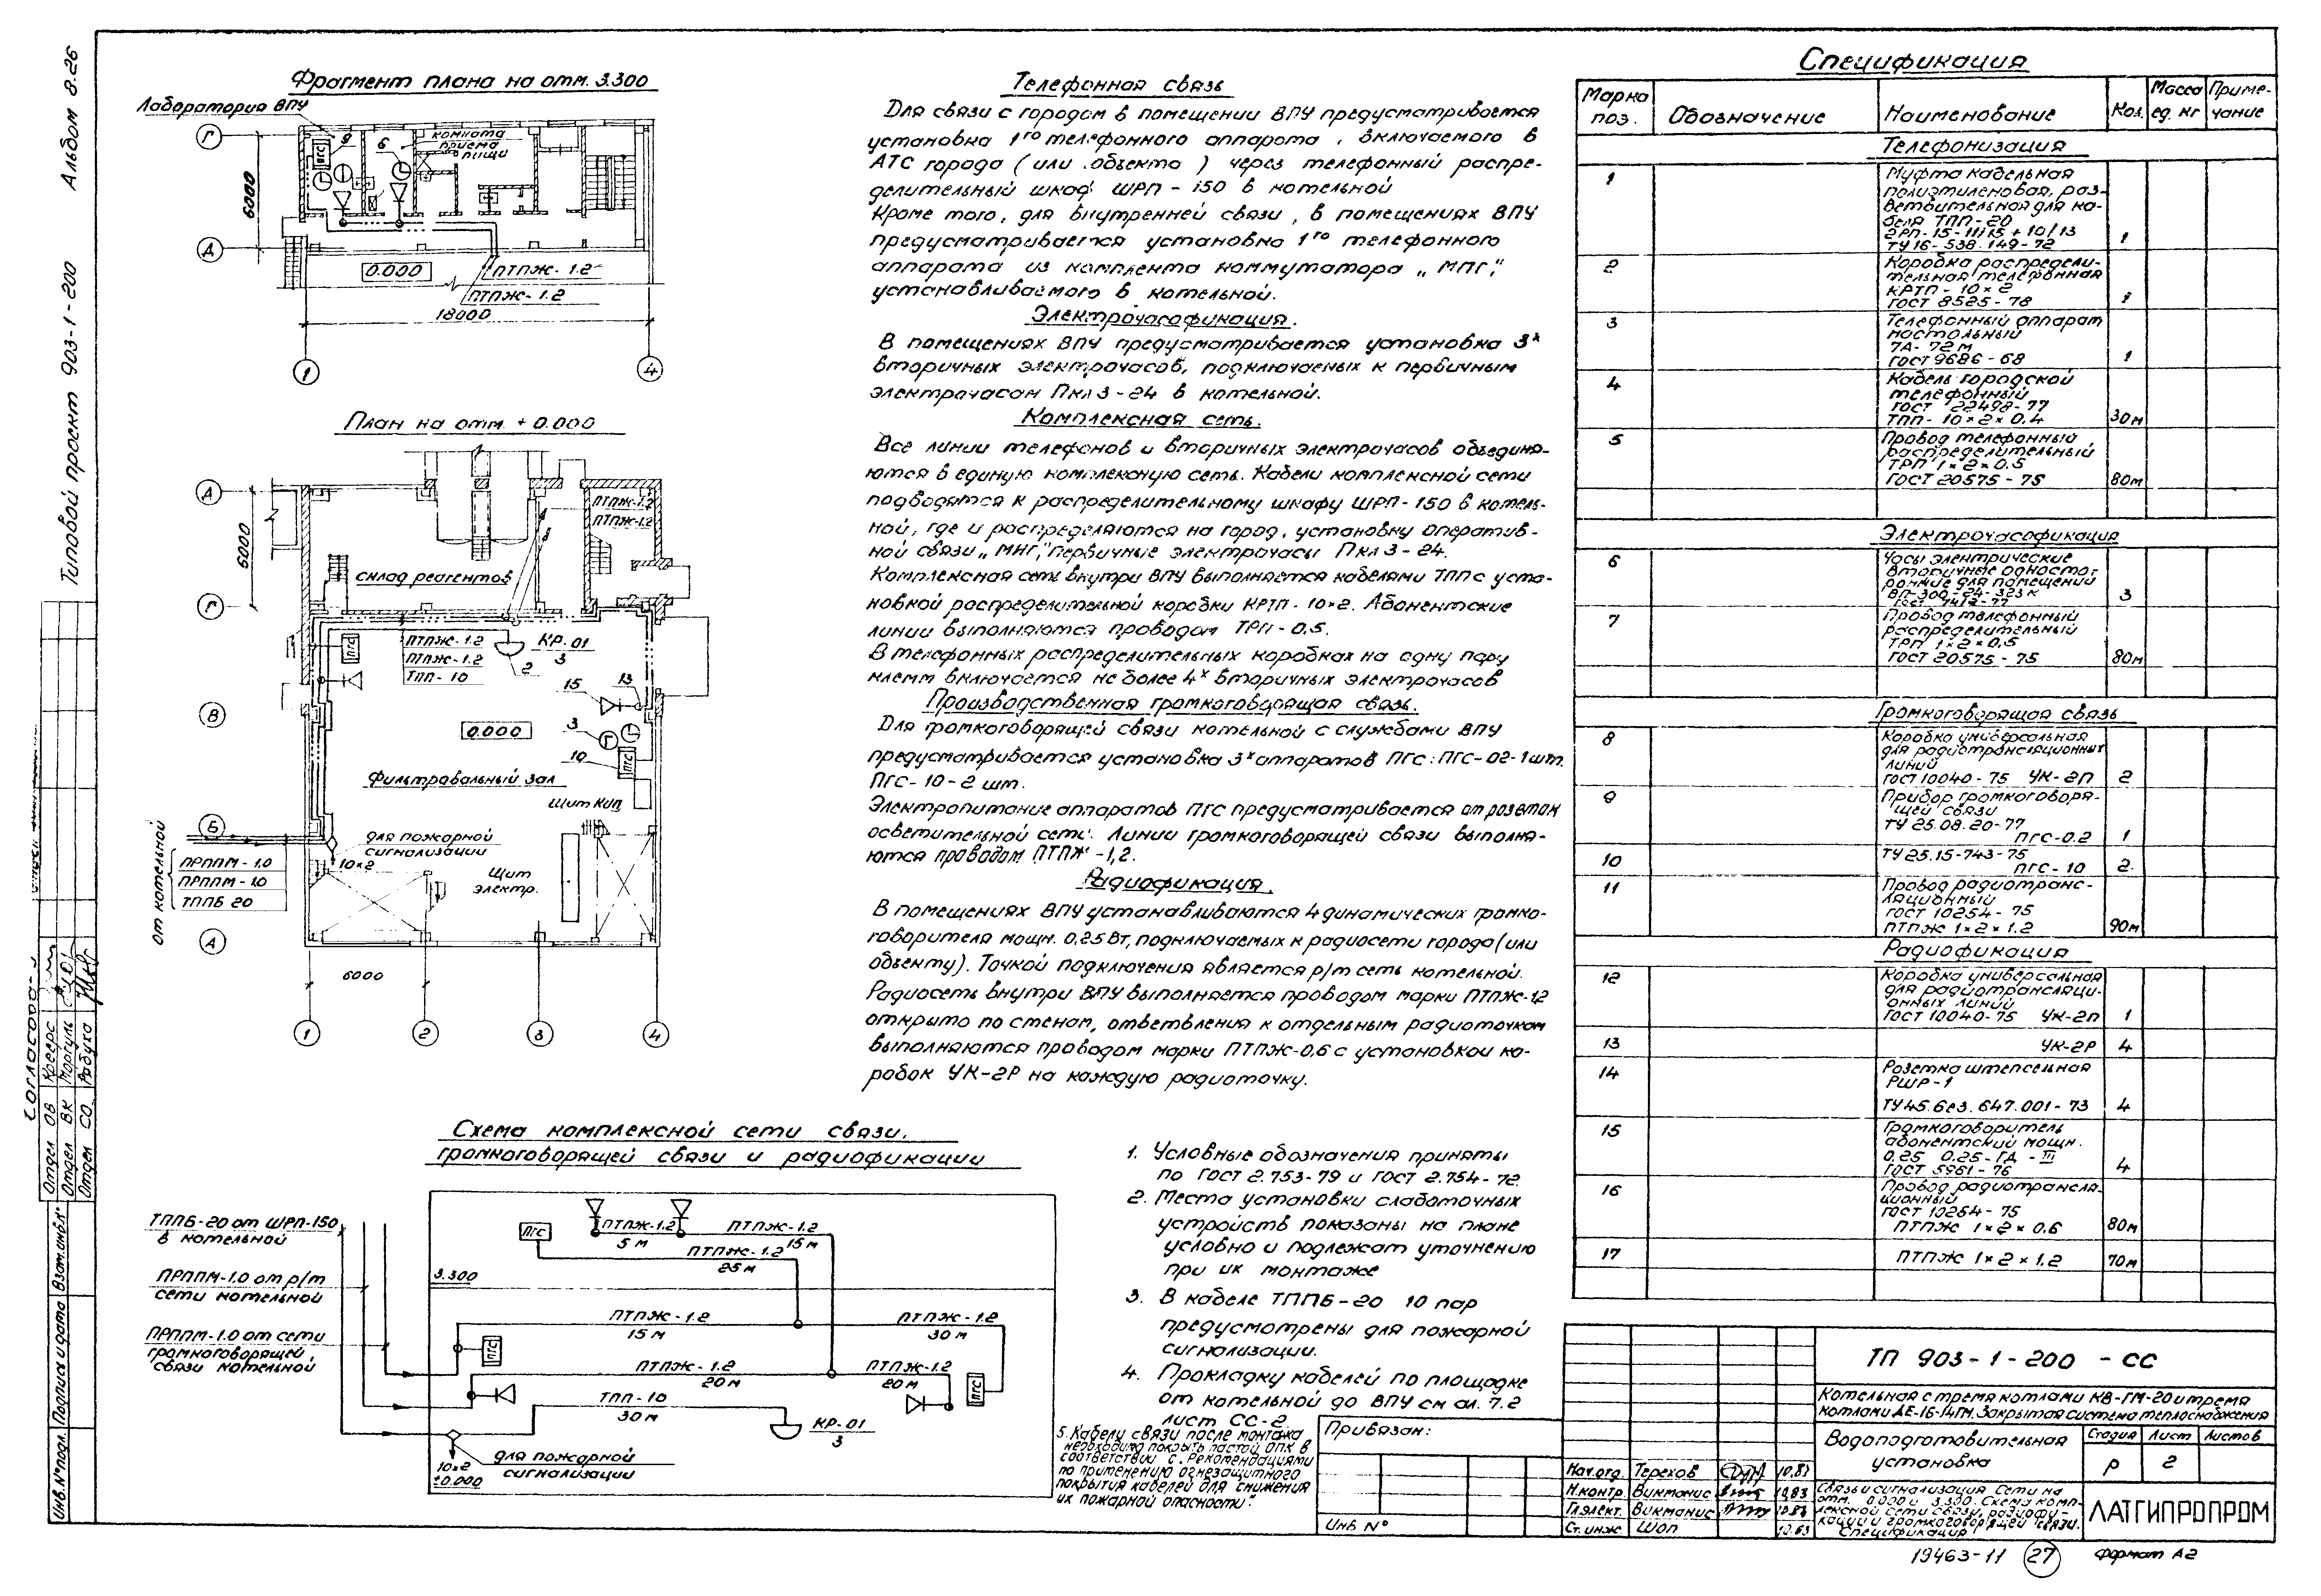 Альбом 8.26
Типовой проект 903-1-200
Фрагмент плана на отм. 3.300
Лаборатория ВПУ
комната
приема
пищи
9
6
ПГС
Г
Д
6000
0.000
ПТПЖ-1.2
ПТПЖ-1.2
18000
1
4
План на отм. ± 0.000
Д
ПТПЖ-1.2
ПТПЖ-1.2
6000
склад реагентов
Г
ПГС
ПТПЖ-1.2
ПТПЖ-1.2
ТПП-10
КР-01
3
2
15
13
В
0.000
3
Г
10
ПГС
Фильтровальный зал
Щит КИП
Б
для пожарной
сигнализации
10×2
от котельной
ПРППМ-1.0
ПРППМ-1.0
ТППБ 20
Щит
электр.
А
6000
1
2
3
4
Телефонная связь
Для связи с городом в помещении ВПУ предусматривается
установка 1го телефонного аппарата, включаемого в
АТС города (или объекта) через телефонный распре-
делительный шкаф ШРП-150 в котельной
Кроме того, для внутренней связи, в помещениях ВПУ
предусматривается установка 1го телефонного
аппарата из комплекта коммутатора „МПГ",
устанавливаемого в котельной.
Электрочасофикация.
В помещениях ВПУ предусматривается установка 3х
вторичных электрочасов, подключаемых к первичным
электрочасам Пкл3-24 в котельной.
Комплексная сеть.
Все линии телефонов и вторичных электрочасов объединя-
ются в единую комплексную сеть. Кабели комплексной сети
подводятся к распределительному шкафу ШРП-150 в котель-
ной, где и распределяются на город, установку оператив-
ной связи „МНГ", первичные электрочасы Пкл3-24.
Комплексная сеть внутри ВПУ выполняется кабелями ТПП с уста-
новкой распределительной коробки КРТП-10×2. Абонентские
линии выполняются проводом ТРП-0.5.
В телефонных распределительных коробках на одну пару
клемм включается не более 4х вторичных электрочасов
Производственная громкоговорящая связь.
Для громкоговорящей связи котельной с службами ВПУ
предусматривается установка 3х аппаратов ПГС: ПГС-02-1шт.
ПГС-10-2 шт.
Электропитание аппаратов ПГС предусматривается от розеток
осветительной сети. Линии громкоговорящей связи выполня-
ются проводом ПТПЖ-1,2.
Радиофикация.
В помещениях ВПУ устанавливаются 4 динамических громко-
говорителя мощн. 0,25 Вт, подключаемых к радиосети города (или
объекту). Точкой подключения является р/т сеть котельной.
Радиосеть внутри ВПУ выполняется проводом марки ПТПЖ-1.2
открыто по стенам, ответвления к отдельным радиоточкам
выполняются проводом марки ПТПЖ-0,6 с установкой ко-
робок УК-2Р на каждую радиоточку.
Схема комплексной сети связи.
громкоговорящей связи и радиофикации
ТППБ-20 от ШРП-150
в котельной
ПРППМ-1.0 от р/т
сети котельной
ПРППМ-1.0 от сети
громкоговорящей
связи котельной
ПГС
ПТПЖ-1.2
5 м
ПТПЖ-1.2
15м
ПТПЖ-1.2
25 м
3.300
ПТПЖ-1.2
15 м
ПТПЖ-1.2
30 м
ПГС
ПТПЖ-1.2
20 м
ПТПЖ-1.2
20 м
ПГС
ТПП-10
30 м
КР-01
3
для пожарной
сигнализации
10×2
±0.000
1. Условные обозначения приняты
по ГОСТ 2.753-79 и ГОСТ 2.754-72.
2. Места установки слаботочных
устройств показаны на плане
условно и подлежат уточнению
при их монтаже
3. В кабеле ТППБ-20 10 пар
предусмотрены для пожарной
сигнализации.
4. Прокладку кабелей по площадке
от котельной до ВПУ см ал. 7.2
лист СС-2.
5. Кабели связи после монтажа
необходимо покрыть пастой ОПК в
соответствии с „Рекомендациями
по применению огнезащитного
покрытия кабелей для снижения
их пожарной опасности".
Спецификация
Марка поз. Обозначение Наименование Кол. Масса ед. кг Приме-чание
Телефонизация
1 Муфта кабельная
полиэтиленовая, раз-
ветвительная для ка-
беля ТПП-20
2РП-15-11/15+10/13
ТУ16-538.149-72 1
2 Коробка распредели-
тельная телефонная
КРТП-10×2
ГОСТ 8525-78 1
3 Телефонный аппарат
настольный
7А-72м
ГОСТ 9686-68 1
4 Кабель городской
телефонный
ГОСТ 22498-77
ТПП-10×2×0.4 30м
5 Провод телефонный
распределительный
ТРП 1×2×0.5
ГОСТ 20575-75 80м
Электрочасофикация
6 Часы электрические
вторичные односто-
ронние для помещений
ВП-300-24-323к
ГОСТ 7412-77 3
7 Провод телефонный
распределительный
ТРП 1×2×0.5
ГОСТ 20575-75 80м
Громкоговорящая связь
8 Коробка универсальная
для радиотрансляционных
линий
ГОСТ 10040-75 УК-2П 2
9 Прибор громкоговоря-
щей связи
ТУ 25.08.20-77
ПГС-0.2 1
10 ТУ25.15-743-75
ПГС-10 2.
11 Провод радиотранс-
ляционный
ГОСТ 10254-75
ПТПЖ 1×2×1.2 90м
Радиофикация
12 Коробка универсальная
для радиотрансляци-
онных линий
ГОСТ 10040-75 УК-2П 1
13 УК-2Р 4
14 Розетка штепсельная
РШР-1
ТУ45.без.647.001-73 4
15 Громкоговоритель
абонентский мощн.
0.25 0.25-ГД-III
ГОСТ 5961-76 4
16 Провод радиотрансля-
ционный
ГОСТ 10254-75
ПТПЖ 1×2×0.6 80м
17 ПТПЖ 1×2×1.2 70м
ТП 903-1-200 -СС
Котельная с тремя котлами КВ-ГМ-20 и тремя
котлами ДЕ-16-14ГМ. Закрытая система теплоснабжения
Водоподготовительная
установка
Стадия Лист Листов
Р 2
Связь и сигнализация. Сети на
отм. 0.000 и 3.300. Схема комп-
лексной сети связи, радиофи-
кации и громкоговорящей связи.
Спецификация
ЛАТГИПРОПРОМ
Привязан:
Инв №
Нач.отд. Терехов 10.83
Н.контр. Викманис 10.83
Гл.элект. Викманис
Ст.инж. Шоп 10.83
19463-11 27 Формат А2
Отдел ОВ
Отдел ВК Маргуль
Отдел СО. Рабуха
Инв.№подл. Подпись и дата Взам.инв.№